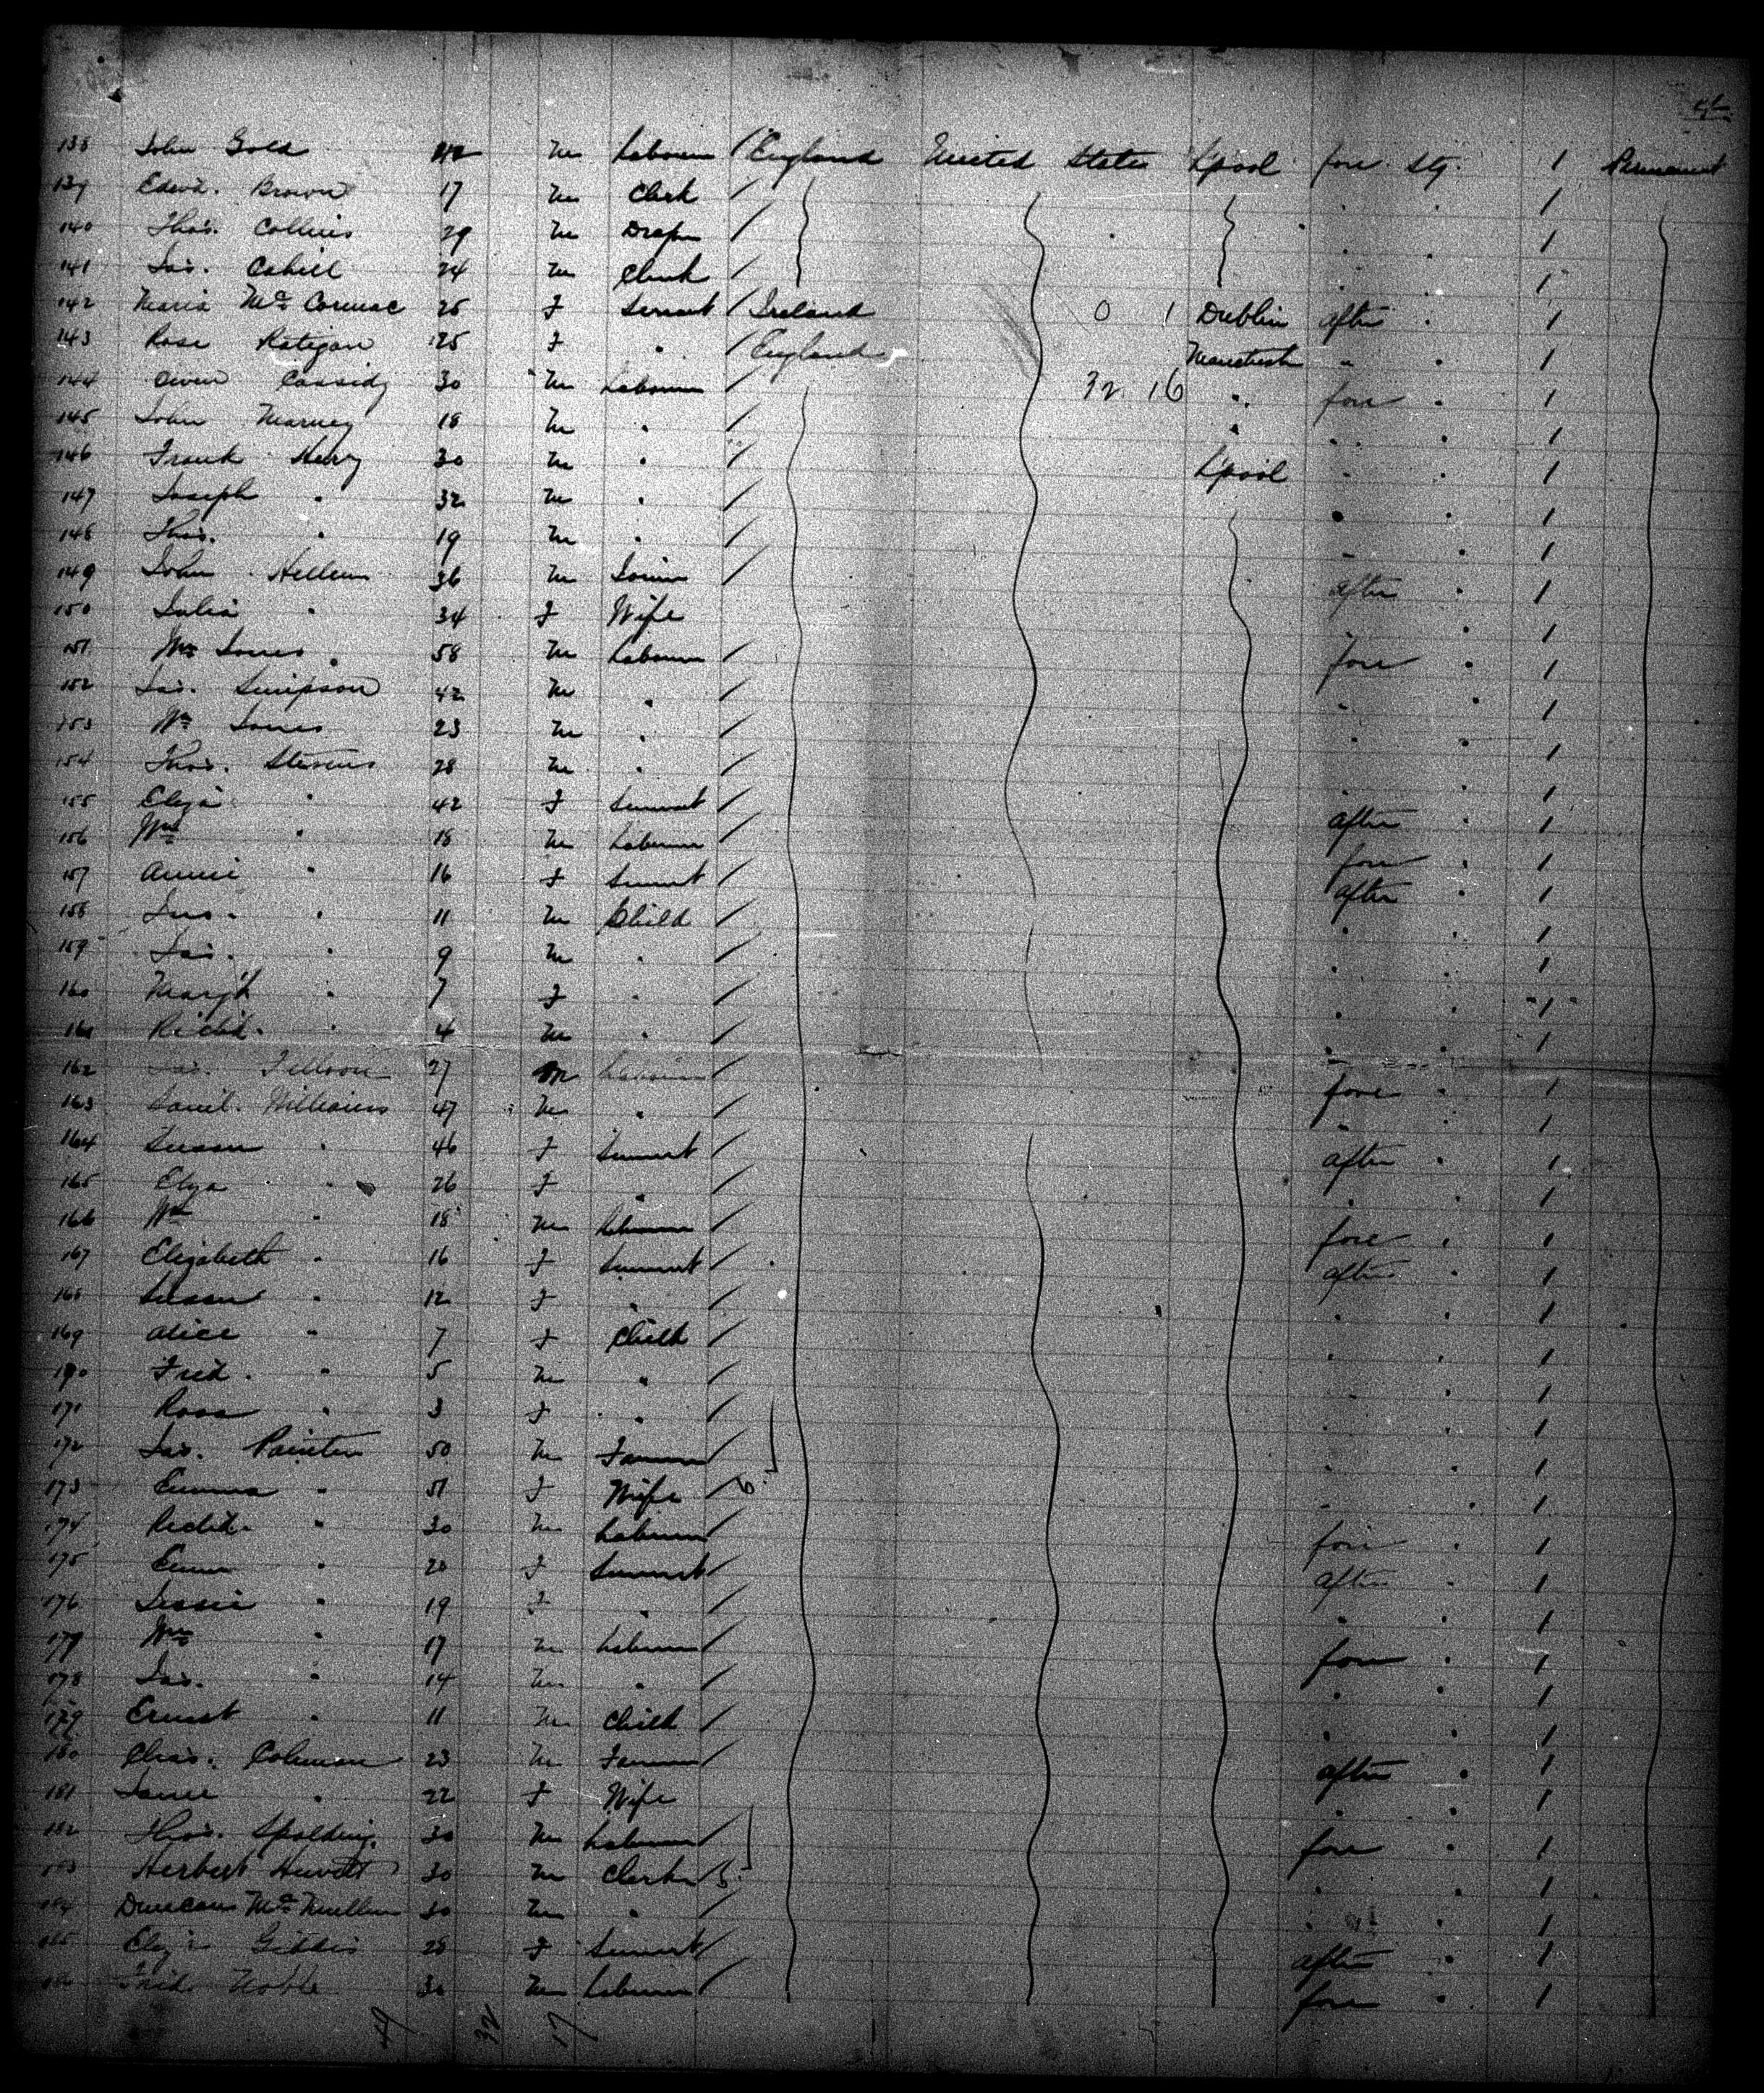 138 John Gold 42 M Labourer / England United States L'pool fore Stg. 1 Permanent
139 Edwd. Brown 17 M Clerk / " " 1
140 Thos. Collins 29 M Draper / " " 1
141 Jas. Cahill 24 M Clerk / " " 1
142 Maria McCormac 25 F Servant / Ireland 0 1 Dublin after " 1
143 Rose Ratigan 25 F " / England Manchester " " 1
144 Owen Cassidy 30 M Labourer / 32 16 " fore " 1
145 John Marney 18 M " / " " " 1
146 Frank Henry 30 M " / L'pool " " 1
147 Joseph " 32 M " / " " 1
148 Thos. " 19 M " / " " 1
149 John 36 M Joiner / after " 1
150 Julia " 34 F Wife " 1
151 Wm Jones 58 M Labourer / fore " 1
152 Jas. Simpson 42 M " / " " 1
153 Wm Jones 23 M " / " " 1
154 Thos. Stevens 28 M " / " " 1
155 Eliza " 42 F Servant / after " 1
156 Wm " 18 M Labourer / fore " 1
157 Annie " 16 F Servant / after " 1
158 Jno. " 11 M Child / " " 1
159 Jas. " 9 M " / " " 1
160 Margt " 7 F " / " " 1
161 Richd. " 4 M " / " " 1
162 Jas. 27 M Labourer / fore " 1
163 Saml. Williams 47 M " / " " 1
164 Susan " 46 F Servant / after " 1
165 Eliza " 26 F " / " " 1
166 Wm " 18 M Labourer / fore " 1
167 Elizabeth " 16 F Servant / after " 1
168 Susan " 12 F " / " " 1
169 Alice " 7 F Child / " " 1
170 Fred. " 5 M " / " " 1
171 Rosa " 3 F " / " " 1
172 Jas. Painter 50 M Farmer / " " 1
173 Emma " 51 F Wife / 6. " " 1
174 Richd. " 30 M Labourer / fore " 1
175 Emma " 20 F Servant / after " 1
176 Jessie " 19 F " / " " 1
177 Wm " 17 M Labourer / fore " 1
178 Jas. " 14 M " / " " 1
179 Ernest " 11 M Child / " " 1
180 Chas. Coleman 23 M Farmer / after " 1
181 " 22 F Wife " " 1
182 Thos. Spalding 30 M Labourer / fore " 1
183 Herbert Hewett 30 M Clerk / 3. " " 1
184 Duncan McMullen 30 M " " " 1
185 Eliz'h Gibbis 28 F Servant / after " 1
186 Fred. Noble 30 M Labourer / fore " 1
49 32 17